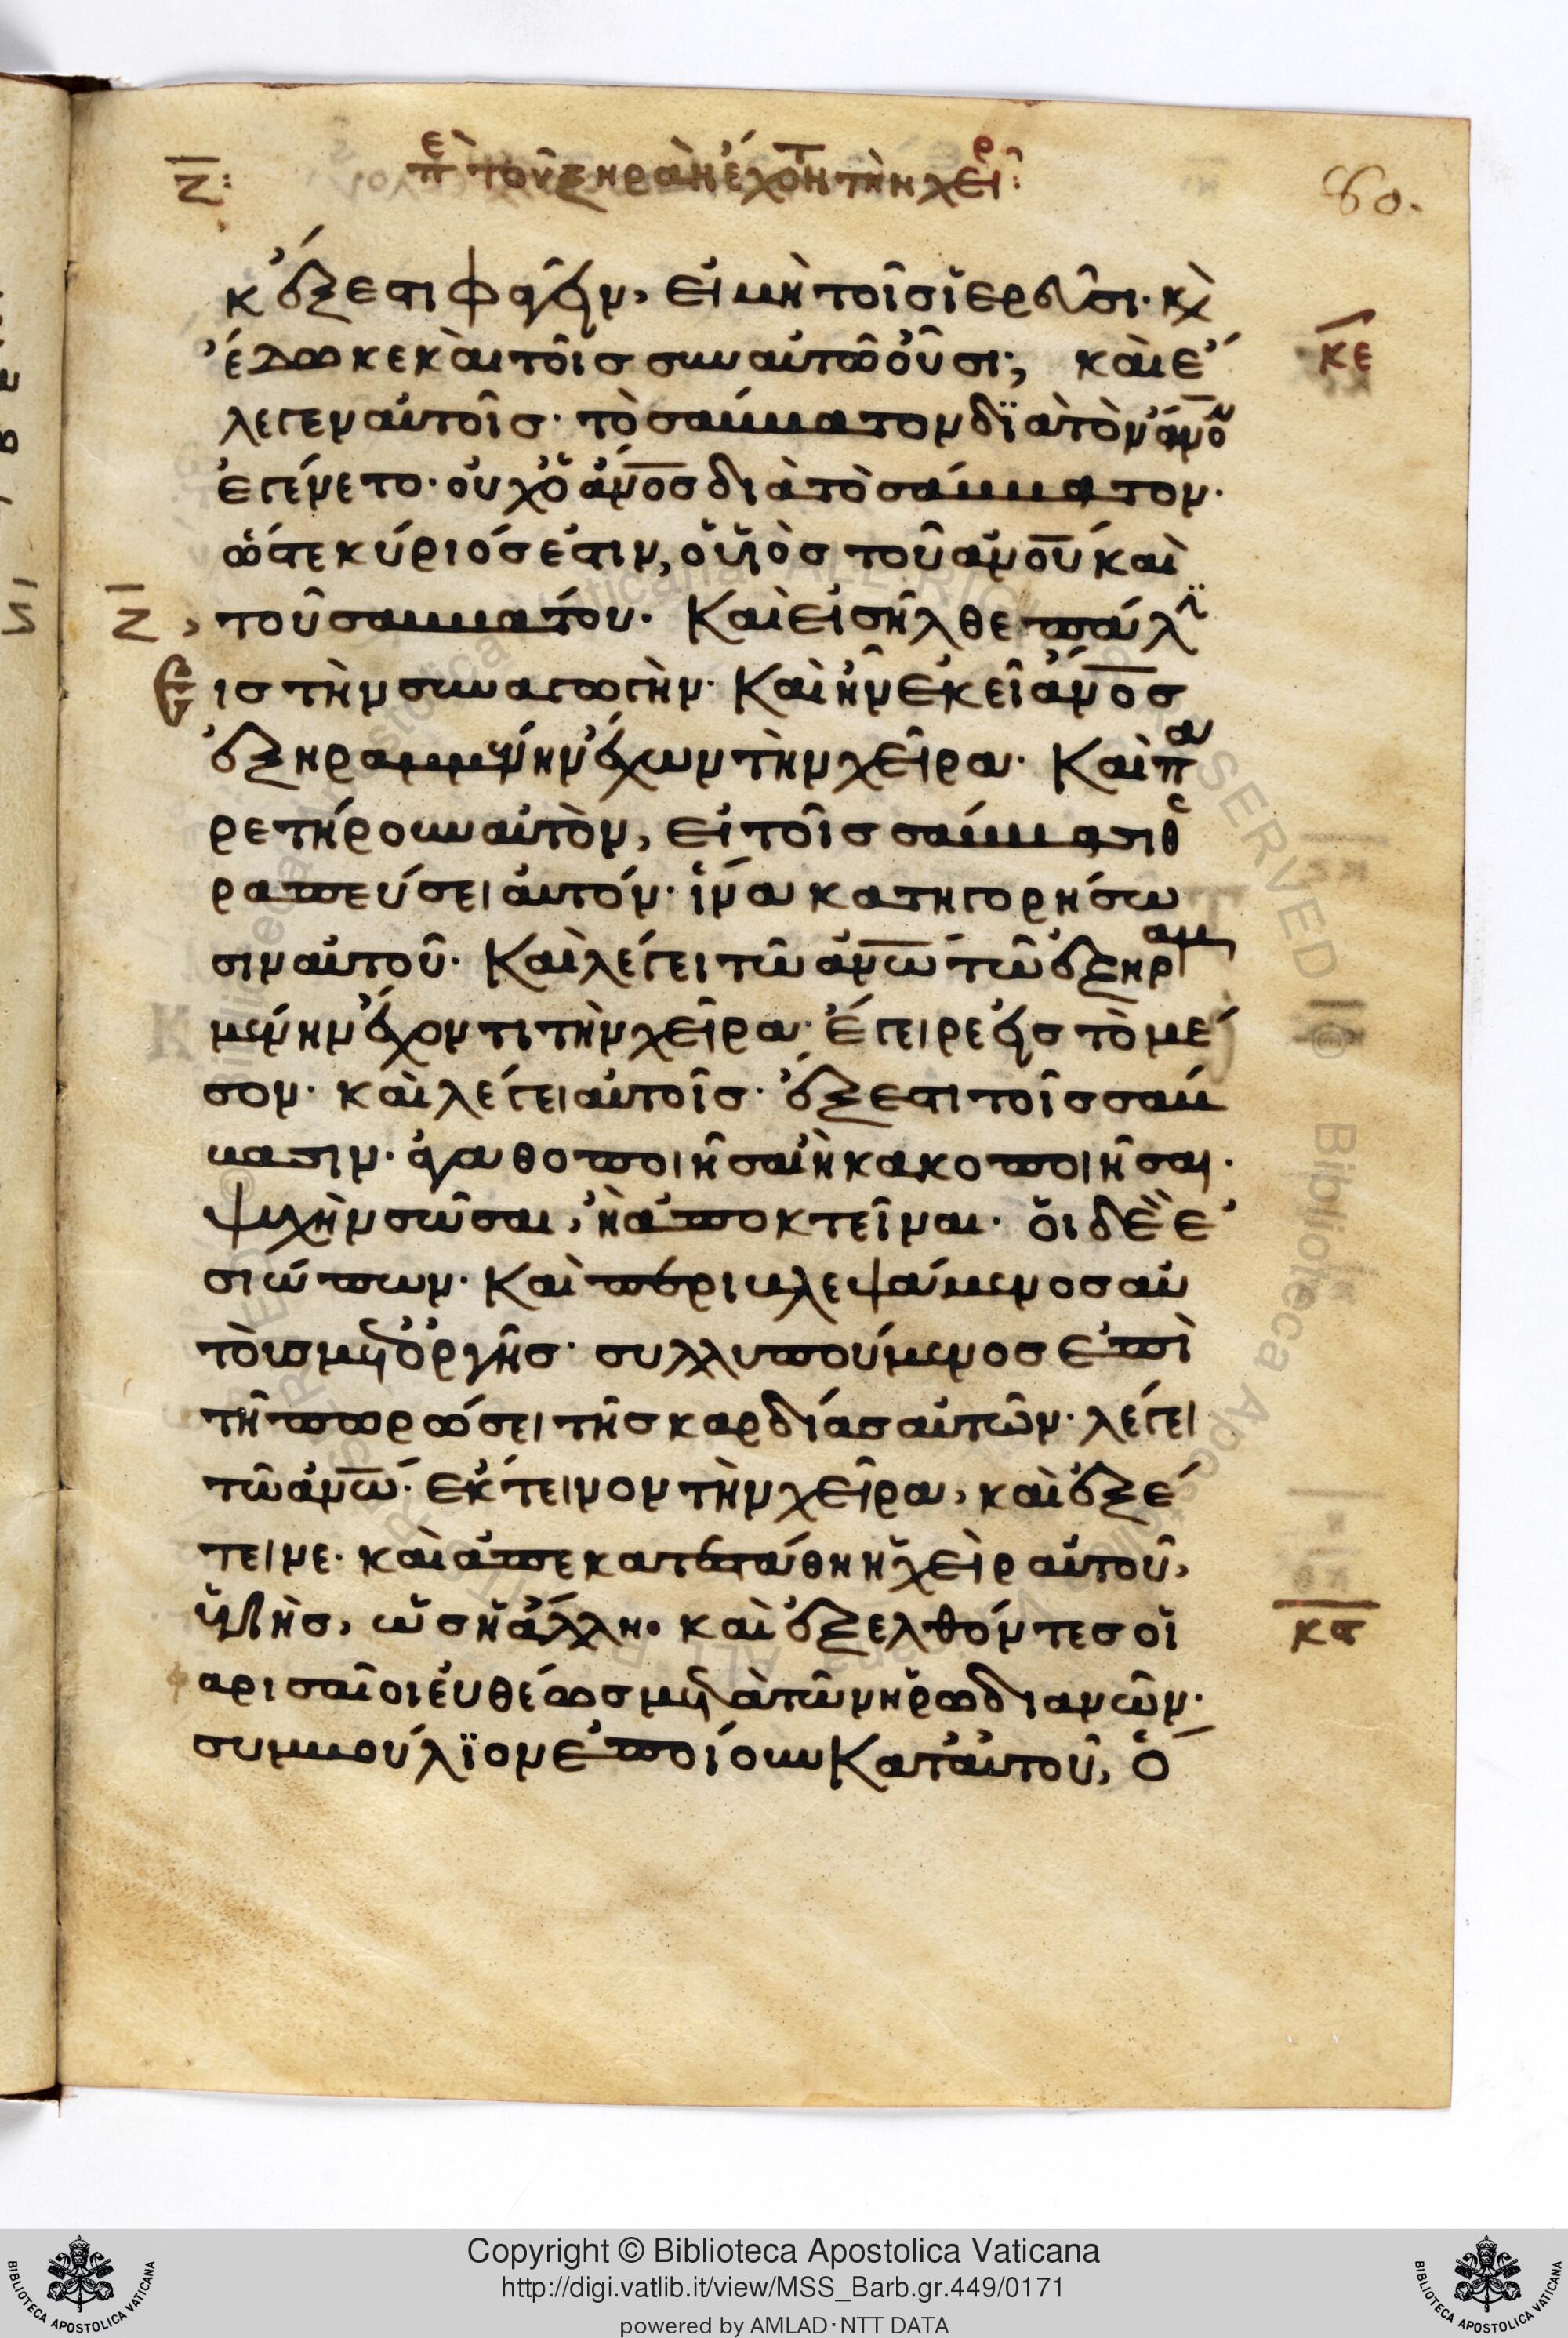 ζ: πε τοῦ ξηρὰν ἔχοντ τὴν χεῖρ: 80.
κ ἔξεστι φαγεῖν, εἰ μὴ τοῖς ἱερεῦσι· κὶ
ἔδωκε καὶ τοῖς συν αὐτῶ οὖσι; καὶ ἔ κε
λεγεν αὐτοῖς· τὸ σάββατον διὰ τὸν ἄνον
ἐγένετο· οὐχ ὁ ἄνος διὰ τὸ σάββατον·
ὥστε κύριός ἐστιν, ὁ υἱὸς τοῦ ἀνου καὶ
ζ τοῦ σαββάτου· Καὶ εἰσῆλθε πάλϊ
εις τὴν συναγωγὴν· Καὶ ἦν ἐκεῖ ἄνος
ἐξηραμμένην ἔχων τὴν χεῖρα· Καὶ πα
ρετήρουν αὐτὸν, εἰ τοῖς σάββασι θε
ραπεύσει αὐτόν· ἵνα κατηγορήσω
σιν αὐτοῦ· Καὶ λέγει τῶ ἀνω τῶ ἐξηραμ
μένην ἔχοντι τὴν χεῖρα· ἔγειρε εἰς τὸ μέ
σον· καὶ λέγει αὐτοῖς· ἔξεστι τοῖς σάβ
βασιν· ἀγαθοποιῆσαι ἢ κακοποιῆσαι·
ψυχὴν σῶσαι, ἢ ἀποκτεῖναι· ὁι δὲ ἐ
σιώπων· Καὶ περιβλεψάμενος αὐ
τοὺς μετ ὀργῆς· συλλυπούμενος ἐπὶ
τῆ πωρώσει τῆς καρδίας αὐτῶν· λέγει
τῶ ἀνω· ἔκτεινον τὴν χεῖρα, καὶ ἐξέ
τεινε· καὶ ἀπεκατεστάθη ἡ χεὶρ αὐτοῦ,
ὑγιὴς, ὡς ἡ ἄλλη· καὶ ἐξελθόντες οἱ κϛ
φαρισαῖοι εὐθέως μετὰ τῶν ἡρωδιανῶν·
συμβούλϊον ἐποίουν Κατ αὐτοῦ, ὁ
Copyright © Biblioteca Apostolica Vaticana
http://digi.vatlib.it/view/MSS_Barb.gr.449/0171
powered by AMLAD·NTT DATA
BIBLIOTECA APOSTOLICA VATICANA
BIBLIOTECA APOSTOLICA VATICANA